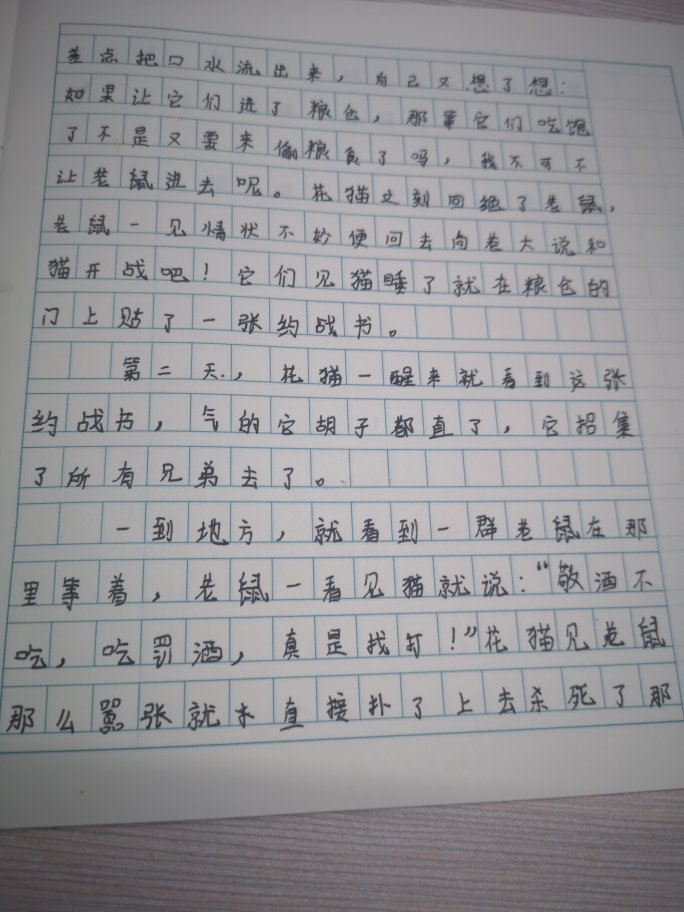 差点把口水流出来，自己又想了想：
如果让它们进了粮仓，那等它们吃饱
了不是又要来偷粮食了吗，我不可不
让老鼠进去呢。花猫立刻回绝了老鼠，
老鼠一见情状不妙便回去向老大说和
猫开战吧！它们见猫睡了就在粮仓的
门上贴了一张约战书。
第二天，花猫一醒来就看到这张
约战书，气的它胡子都直了，它招集
了所有兄弟去了。
一到地方，就看到一群老鼠在那
里等着，老鼠一看见猫就说："敬酒不
吃，吃罚酒，真是找打！"花猫见老鼠
那么嚣张就直接扑了上去杀死了那